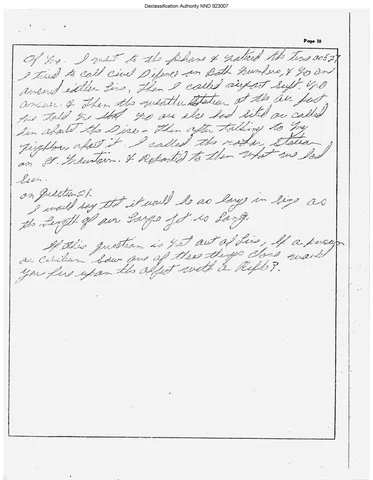 Declassification Authority NND 923007
Page 10
I went to the Phone & Noticed the time
I tried to call Civil Defence on Both Numbers, & No one
answered either line, Then I called airport Supt. No
answer. & Then the weather Station at the air
He told me that No one else had called
him about the Disc - Then after talking to my
Neighbor about it I called the radar Station
on Mountain. & Reported to them what we had
Seen.
on question
I would say that it would be as large in Size as
the Length of our Large Jet is Long.
If this question is Not out of Line, If a person
or Civilian Saw one of these things Close would
you fire upon the object with a Rifle?